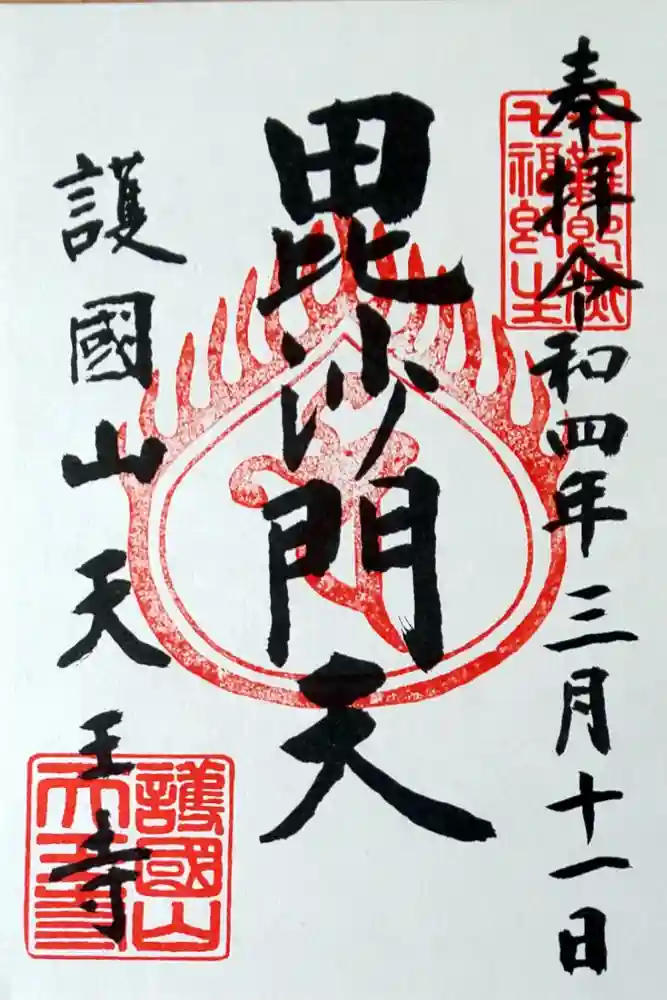 奉拝令和四年三月十一日
七難即滅
七福即生
毘沙門天
護國山天王寺
護國山
天王寺